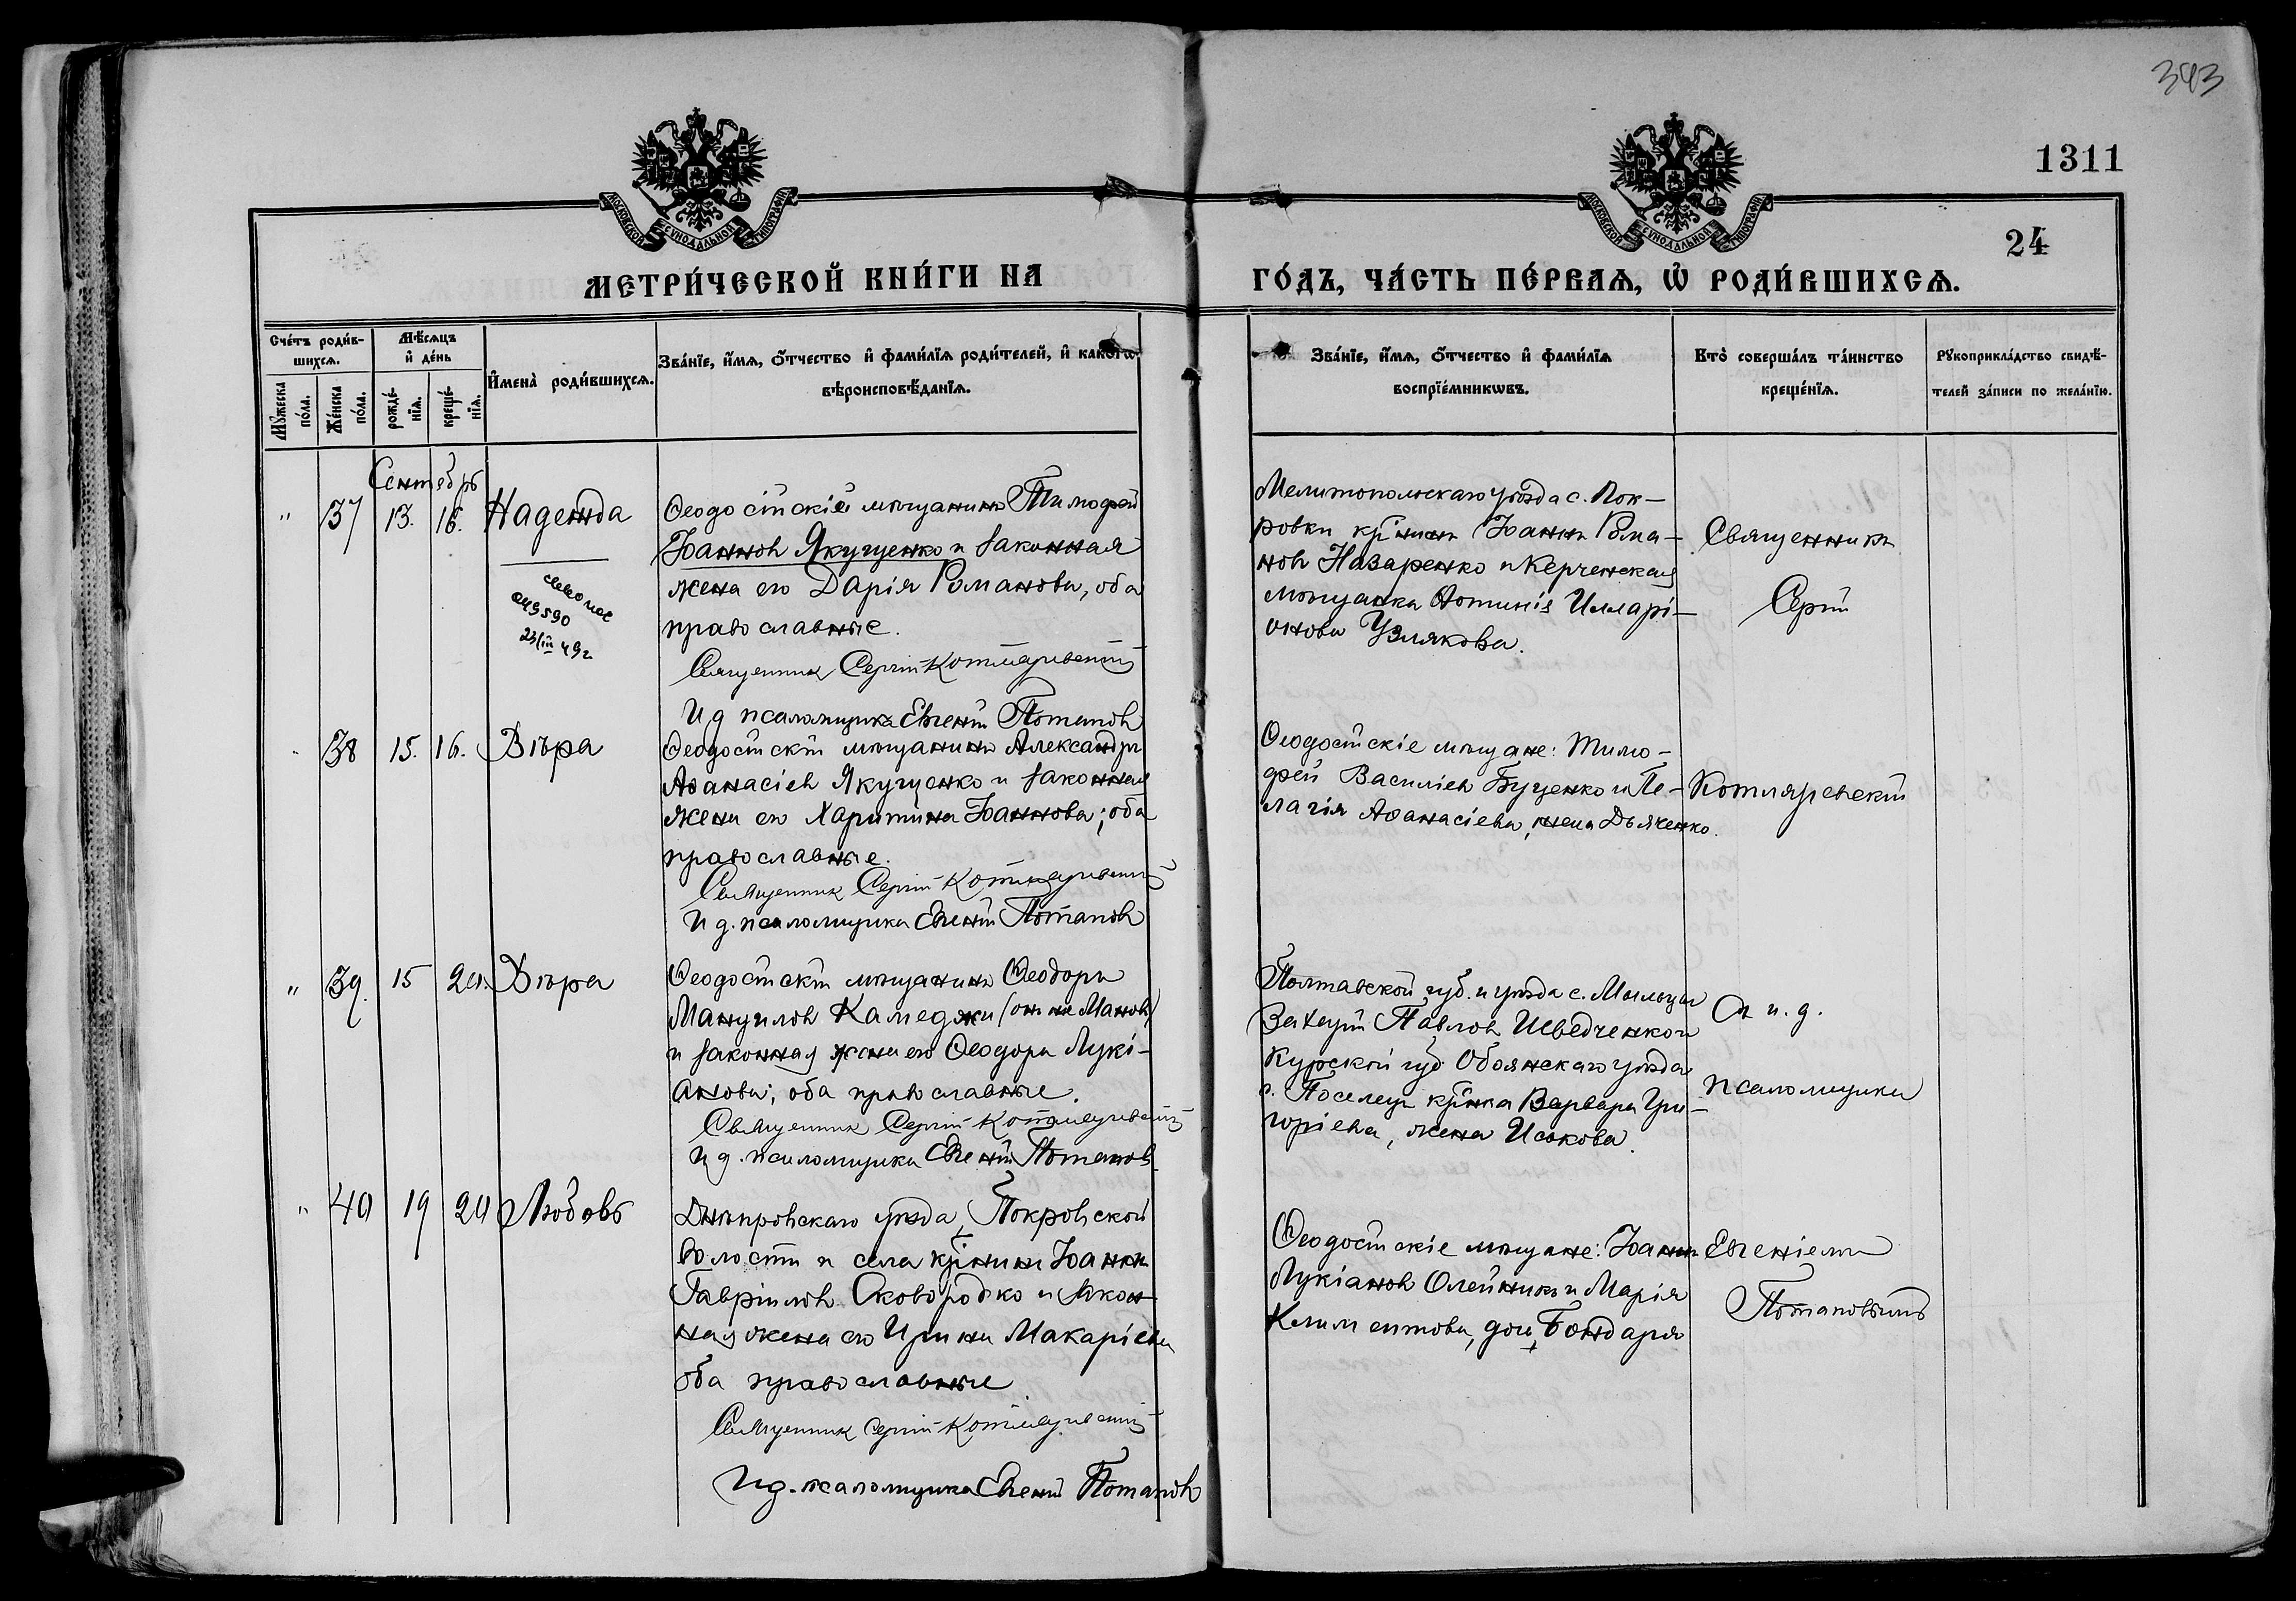 393
1311
24
МОСКОВСКОЙ СѴНОДАЛЬНОЙ ТИПОГРАФІИ
МОСКОВСКОЙ СѴНОДАЛЬНОЙ ТИПОГРАФІИ
МЕТРИ́ЧЕСКОЙ КНИ́ГИ НА
ГО́ДЪ, ЧА́СТЬ ПЕ́РВАѦ, Ѽ РОДИ́ВШИХСѦ.
Сче́тъ роди́в-
шихсѧ.
Мꙋ́жеска по́ла.
Же́нска по́ла.
Мѣ́сѧцъ
и҆ де́нь
рожде́-
нїѧ.
креще́-
нїѧ.
И҆мена̀ роди́вшихсѧ.
Зва́нїе, и҆́мѧ, ѻ҆́тчество и҆ фами́лїѧ роди́телей, и҆ како́гѡ
вѣроисповѣ́данїѧ.
Зва́нїе, и҆́мѧ, ѻ҆́тчество и҆ фами́лїѧ
воспрїе́мникѡвъ.
Кто̀ соверша́лъ та́инство
креще́нїѧ.
Рꙋкоприкла́дство свидѣ́-
телей за́писи по жела́нїю.
Сентябрь
" 37 13. 16. Надежда
Ѳеодосійскій мѣщанинъ Тимофей
Іоанновъ Якущенко и законная
жена его Дарія Романова, оба
православные.
Священник Сергій Котляревскій
И д псаломщика Евгеній Потаповъ
049590
23/III 49 г
Мелитопольскаго уѣзда с. Пок-
ровки кр̃нинъ Іоаннъ Рома-
новъ Назаренко и Керченская
мѣщанка Фотинія Илларі-
онова Узлякова.
Священникъ
Сергій
" 38 15. 16. Вѣра
Ѳеодосійскій мѣщанинъ Александръ
Аѳанасіевъ Якущенко и законная
жена его Харитина Іоаннова; оба
православные.
Священник Сергій Котляревскій
И д. псаломщика Евгеній Потаповъ
Ѳеодосійскіе мѣщане: Тимо-
фей Василіевъ Буценко и Пе-
лагія Аѳанасіева, жена Дьяченко.
Котляревскій
" 39. 15 20. Вѣра
Ѳеодосійскій мѣщанинъ Ѳеодоръ
Мануиловъ Камеджи (он же Мановъ)
и законная жена его Ѳеодора Лукі-
анова; оба православные.
Священник Сергій Котляревскій
И д. псаломщика Евгеній Потаповъ
Полтавской губ. и уѣзда с.
Павловъ Шведченко и
Курской губ. Обоянскаго уѣзда
с. кр̃нка Варвара Гри-
горіева, жена Исакова.
Съ и. д.
псаломщика
" 40 19 20 Любовь
Днѣпровскаго уѣзда, Покровской
волости и села кр̃нинъ Іоаннъ
Гавріиловъ Сковородко и закон-
ная жена его Ирина Макаріева
оба православные
Священник Сергій Котляревскій
И д. псаломщика Евгеній Потаповъ
Ѳеодосійскіе мѣщане: Іоаннъ
Лукіановъ Олейникъ и Марія
Климентова, дочь Бондаря
Евгеніемъ
Потаповымъ